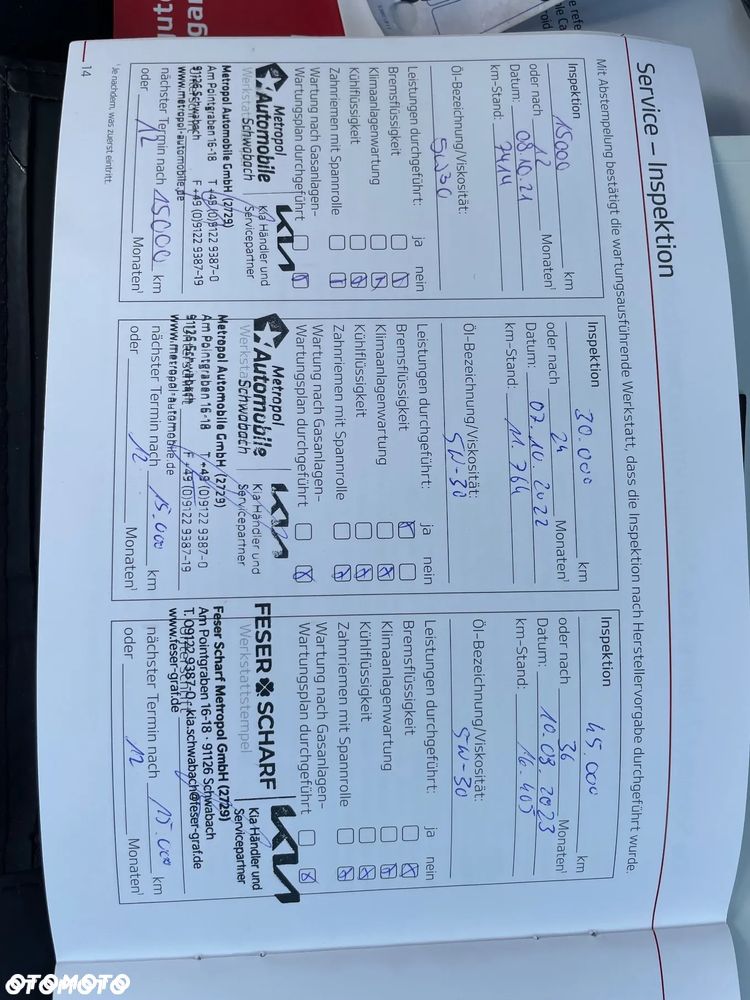 Service – Inspektion
Mit Abstempelung bestätigt die wartungsausführende Werkstatt, dass die Inspektion nach Herstellervorgabe durchgeführt wurde.
Inspektion 15000 km
oder nach 12 Monaten¹
Datum: 08.10.21
km-Stand: 7414
Öl-Bezeichnung/Viskosität:
5W30
Leistungen durchgeführt: ja nein
Bremsflüssigkeit
Klimaanlagenwartung
Kühlflüssigkeit
Zahnriemen mit Spannrolle
Wartung nach Gasanlagen-
Wartungsplan durchgeführt
Metropol
Automobile
Schwabach
KIA
Kia Händler und
Servicepartner
Metropol Automobile GmbH (2729)
Am Pointgraben 16-18 T +49 (0)9122 9387-0
91126 Schwabach F +49 (0)9122 9387-19
www.metropol-automobile.de
nächster Termin nach 15000 km
oder 12 Monaten¹
Inspektion 30.000 km
oder nach 24 Monaten¹
Datum: 07.10.2022
km-Stand: 11.764
Öl-Bezeichnung/Viskosität:
5W-30
Leistungen durchgeführt: ja nein
Bremsflüssigkeit
Klimaanlagenwartung
Kühlflüssigkeit
Zahnriemen mit Spannrolle
Wartung nach Gasanlagen-
Wartungsplan durchgeführt
Metropol
Automobile
Schwabach
KIA
Kia Händler und
Servicepartner
Metropol Automobile GmbH (2729)
Am Pointgraben 16-18 T +49 (0)9122 9387-0
91126 Schwabach F +49 (0)9122 9387-19
www.metropol-automobile.de
nächster Termin nach 15.000 km
oder 12 Monaten¹
Inspektion 45.000 km
oder nach 36 Monaten¹
Datum: 10.08.2023
km-Stand: 16.405
Öl-Bezeichnung/Viskosität:
5W-30
Leistungen durchgeführt: ja nein
Bremsflüssigkeit
Klimaanlagenwartung
Kühlflüssigkeit
Zahnriemen mit Spannrolle
Wartung nach Gasanlagen-
Wartungsplan durchgeführt
FESER SCHARF
Werkstattstempel
KIA
Kia Händler und
Servicepartner
Feser Scharf Metropol GmbH (2729)
Am Pointgraben 16-18 · 91126 Schwabach
T. 09122 9387-0 · kia.schwabach@feser-graf.de
www.feser-graf.de
nächster Termin nach 15.000 km
oder 12 Monaten¹
¹ Je nachdem, was zuerst eintritt.
14
OTOMOTO